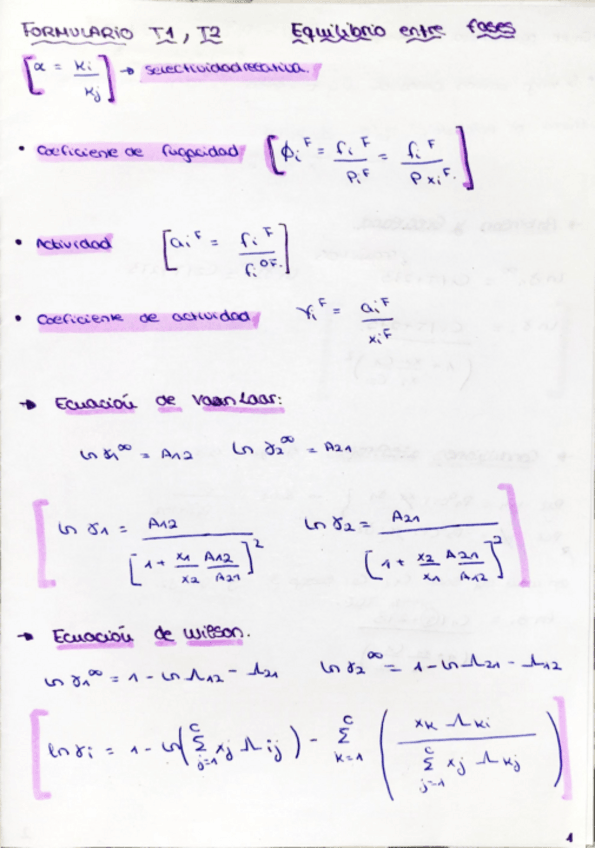 FORMULARIO T1, T2 Equilibrio entre fases
[α = Ki / Kj] → selectividad relativa.
• Coeficiente de fugacidad [ϕi^F = fi^F / Pi^F = fi^F / P xi^F.]
• Actividad [ai^F = fi^F / fi^OF.]
• Coeficiente de actividad γi^F = ai^F / xi^F
→ Ecuación de Vaan Laar:
ln γ1^∞ = A12 ln γ2^∞ = A21
[ln γ1 = A12 / [1 + x1/x2 A12/A21]^2 ln γ2 = A21 / [1 + x2/x1 A21/A12]^2]
→ Ecuación de Wilson.
ln γ1^∞ = 1 - ln Λ12 - Λ21 ln γ2^∞ = 1 - ln Λ21 - Λ12
[ln γi = 1 - ln(Σ_{j=1}^{C} xj Λij) - Σ_{k=1}^{C} (xk Λki / Σ_{j=1}^{C} xj Λkj)]
1